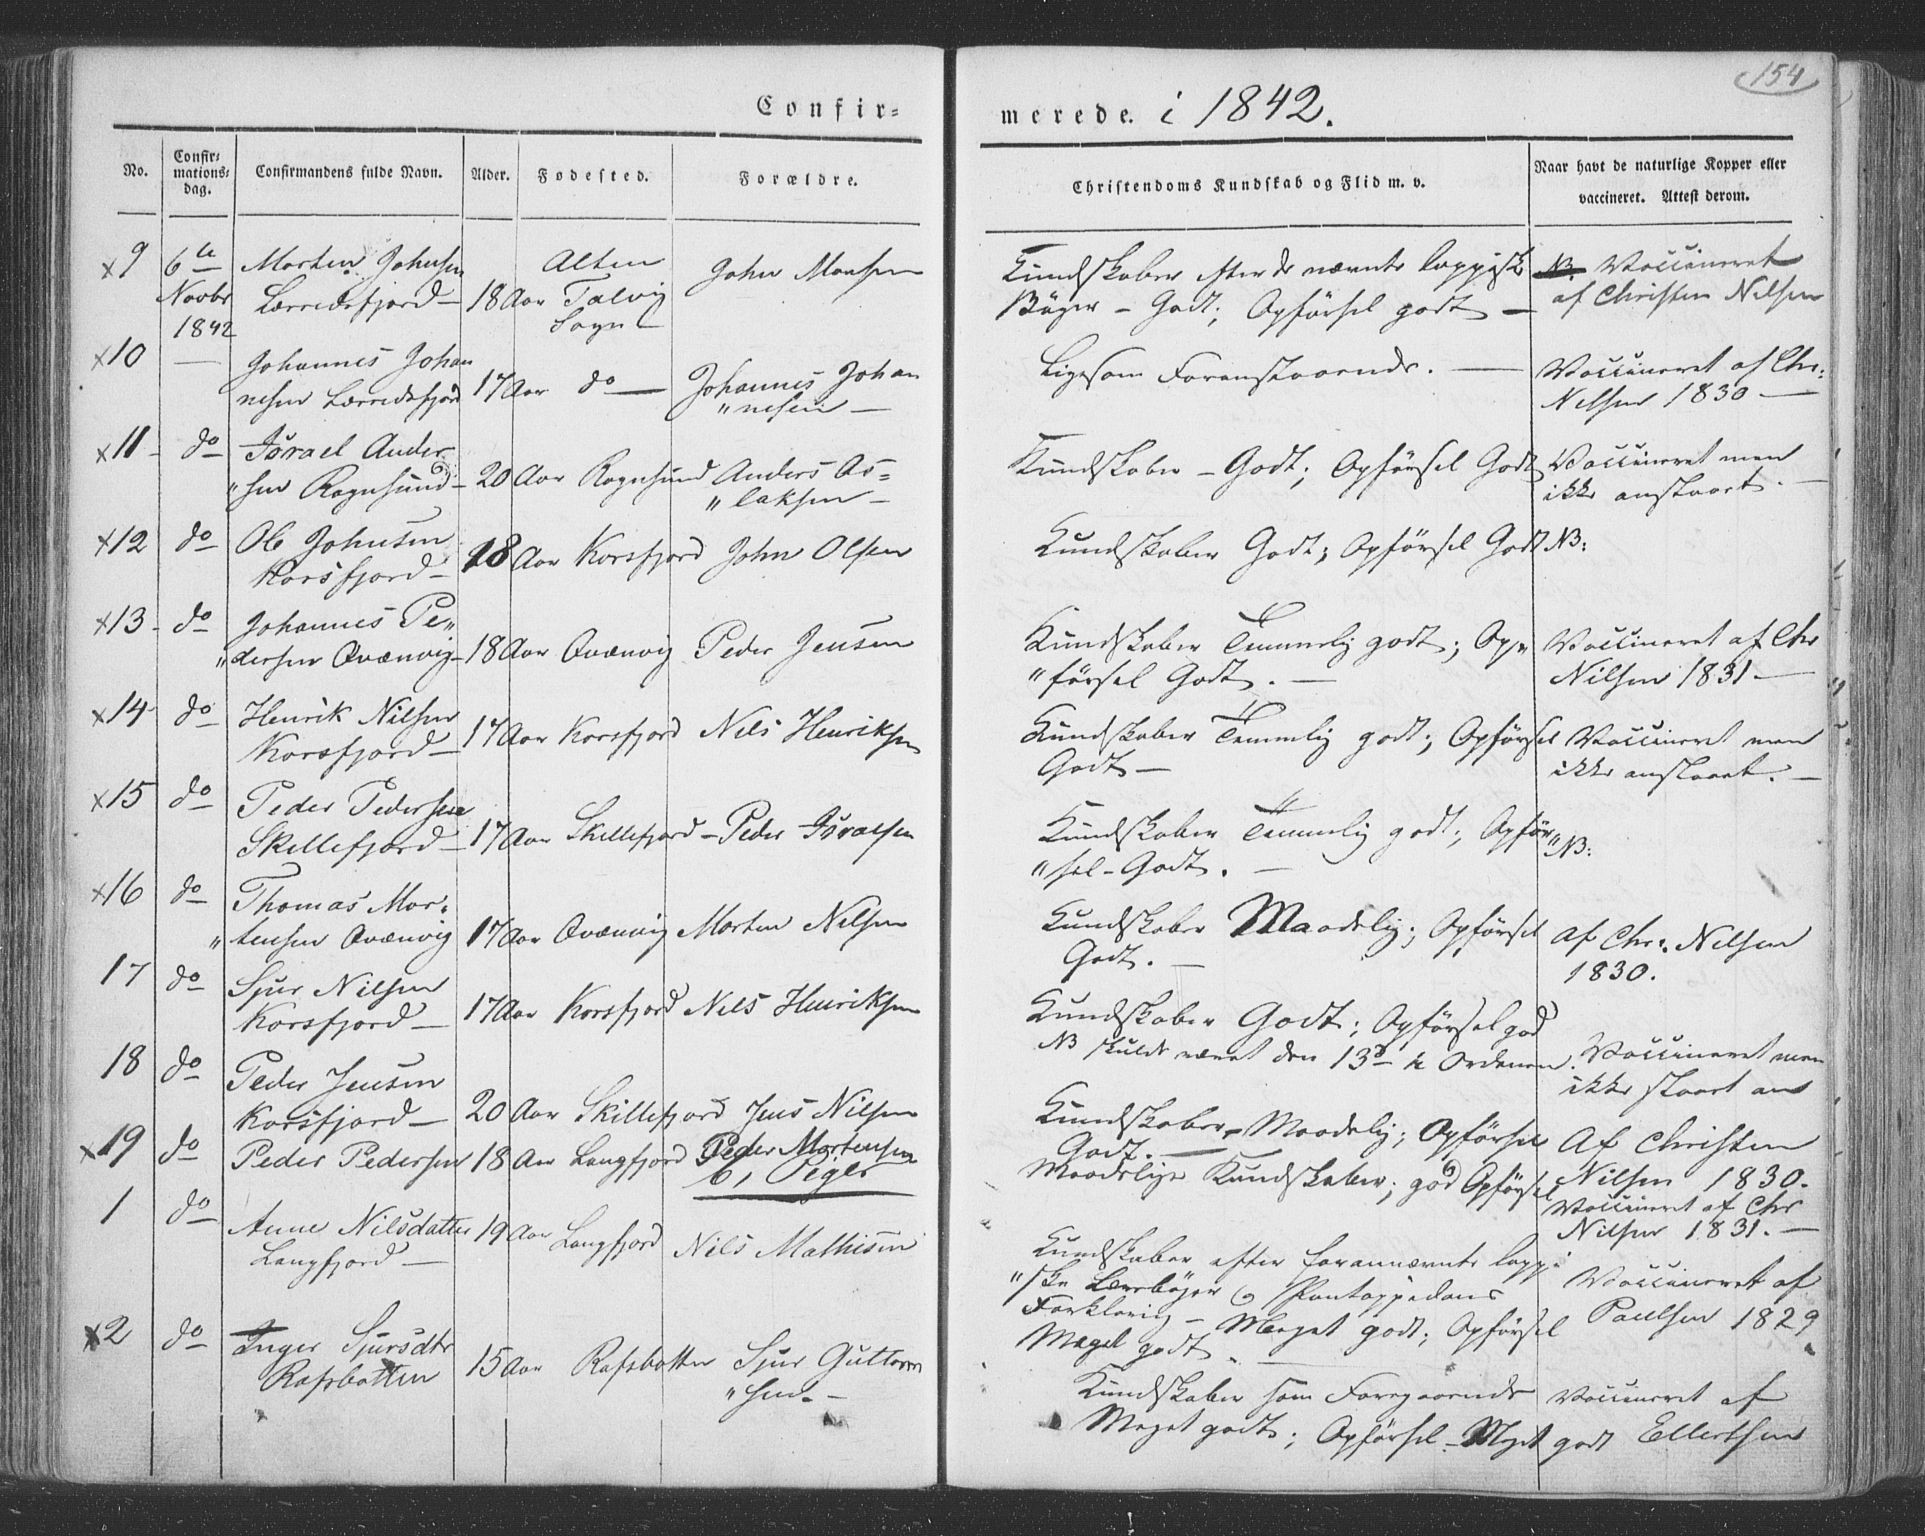 154
Confir=
merede. i 1842.
No.
Confir=
mations=
dag.
Confirmandens fulde Navn.
Alder.
Fødested.
Forældre.
Christendoms Kundskab og Flid m. v.
Naar havt de naturlige Kopper eller
vaccineret. Attest derom.
x9 6te Morten Johnsen Alten John Monsen
Novbr Lerredsfjord – 18 Aar Talvig
1842 Sogn
Kundskaber efter de nævnte lappiske
Bøger – Godt; Opførsel godt –
NB. Vaccineret
af Christen Nilsen
x10 — Johannes Johan
nesen Lerredsfjord 17 Aar do — Johannes Johan
"nesen –
Ligesom Foranstaaende. —
Vaccineret af Chr:
Nilsen 1830 —
x11 – do Israel Ander
"sen Rognsund – 20 Aar Rognsund Anders As=
"laksen –
Kundskaber – Godt; Opførsel Godt
Vaccineret men
ikke anslaaet. –
x12 do Ole Johnsen
Korsfjord – 18 Aar Korsfjord John Olsen
Kundskaber Godt; Opførsel Godt NB:
x13 – do Johannes Pe"
"dersen Qvænvig – 18 Aar Qvænvig Peder Jensen
Kundskaber Temmelig godt; Op"
"førsel Godt. —
Vaccineret af Chr
Nilsen 1831 —
x14 do Henrik Nilsen
Korsfjord – 17 Aar Korsfjord Nils Henriksen
Kundskaber Temmelig godt; Opførsel
Godt –
Vaccineret men
ikke anslaaet. –
x15 do Peder Pedersen
Skillefjord – 17 Aar Skillefjord – Peder Israelsen
Kundskaber Temmelig godt; Opfør"
"sel – Godt. –
NB:
x16 do Thomas Mor:
"tensen Qvænvig 17 Aar Qvænvig Morten Nilsen
Kundskaber Maadelig; Opførsel
Godt. –
af Chr: Nilsen
1830.
17 do Sjur Nilsen
Korsfjord – 17 Aar Korsfjord Nils Henriksen
Kundskaber Godt; Opførsel god
NB skulde været den 13de i Ordenen.
Vaccineret men
ikke slaaet an
18 do Peder Jensen
Korsfjord – 20 Aar Skillefjord Jens Nilsen
Kundskaber – Maadelig; Opførsel
Godt. —
Af Christen
Nilsen 1830.
x19 do Peder Pedersen 18 Aar Langfjord Peder Mortensen
Maadelige Kundskaber; god Opførsel
Vaccineret af Chr
Nilsen 1831. –
b, Piger
1 do Anne Nilsdatter 19 Aar Langfjord Nils Mathisen
Langfjord —
Kundskaber efter forannævnte lapp:
"ske Lærebøger og Pontoppidans
Forklaring – Meget godt; Opførsel
Meget godt. —
Vaccineret af
Paulsen 1829
x2 do Inger Sjursdtr
Rafsbotten 15 Aar Rafsbotten Sjur Guttorm
"sen. –
Kundskaber som Foregaaende
Meget godt; Opførsel – Meget godt
Vaccineret af
Ellertsen